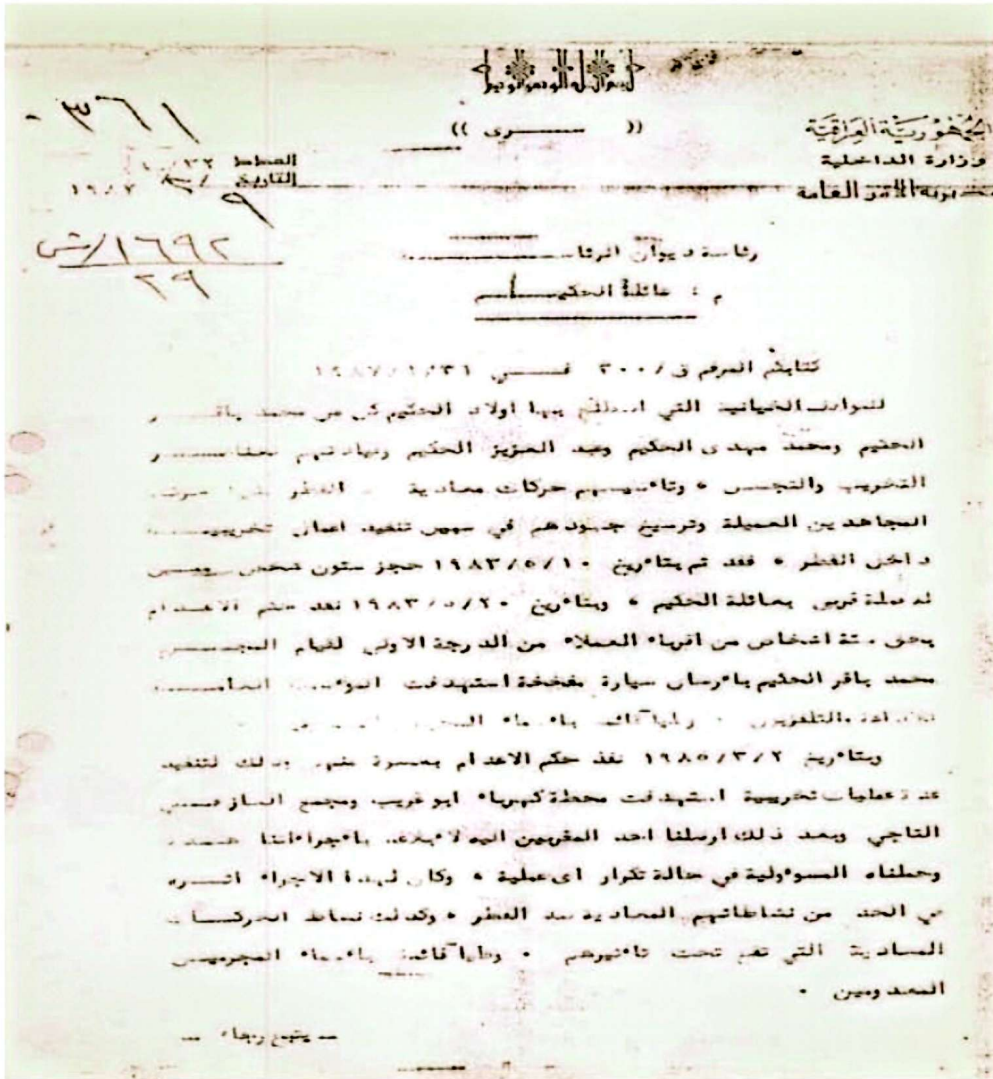 بسم الله الرحمن الرحيم
الجمهورية العراقية
وزارة الداخلية
مديرية الامن العامة
(( ســـرى ))
٣٦١
التاريخ / / ١٩٨٧
٩
١٦٩٢/ش
٢٩
رئاسة ديوان الرئاســـة
م : عائلة الحكيـــم
كتابكم المرقم ق/٣٠٠ فـــي
الخيانية التي اولاد الحكيم كل من محمد باقـــر
الحكيم ومحمد مهدى الحكيم وعبد العزيز الحكيم وقيادتهم لعناصـــر
التخريب والتجسس ٠ وتأسيسهم حركات معادية القطر
المجاهدين العميلة وترسيخ جهودهم في سبيل تنفيذ اعمال تخريبيـــة
داخل القطر ٠ فقد تم بتأريخ ١٩٨٣/٥/١٠ حجز ستون شخص
له صلة قربى بعائلة الحكيم ٠ وبتأريخ ١٩٨٣/٥/٢٠ نفذ حكم الاعـدام
بحق ستة اشخاص من اقرباء العملاء من الدرجة الاولى لقيام المجـــرم
محمد باقر الحكيم بأرسال سيارة مفخخة استهدفت العامـــة
للاذاعة والتلفزيون ٠ وطيا قائمة بأسماء
وبتأريخ ١٩٨٥/٣/٢ نفذ حكم الاعدام بعشرة منهم وذلك لتنفيذ
عدة عمليات تخريبية استهدفت محطة كهرباء ابو غريب ومجمع الغاز فـــي
التاجي وبعد ذلك ارسلنا احد المقربين اليه لابلاغه باجراءاتنا
وحملناه المسؤولية في حالة تكرار اى عملية ٠ وكان لهذا الاجراء اثـــره
في الحد من نشاطاتهم المعادية ضد القطر ٠ وكذلك نشاط الحركـــات
المعادية التي تقع تحت تأثيرهم ٠ وطيا قائمة بأسماء المجرميـــن
المعدومين ٠
ــ يتبع رجاء ــ